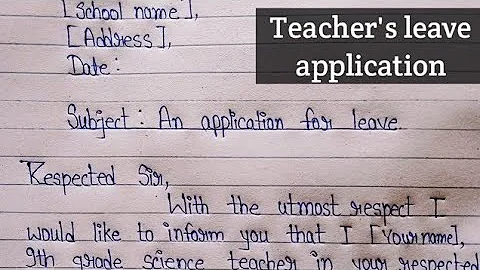 [School name],
[Address],
Date:
Teacher's leave
application
Subject: An application for leave.
Respected Sir,
With the utmost respect I
would like to inform you that I [Your name],
9th grade science teacher in your respected